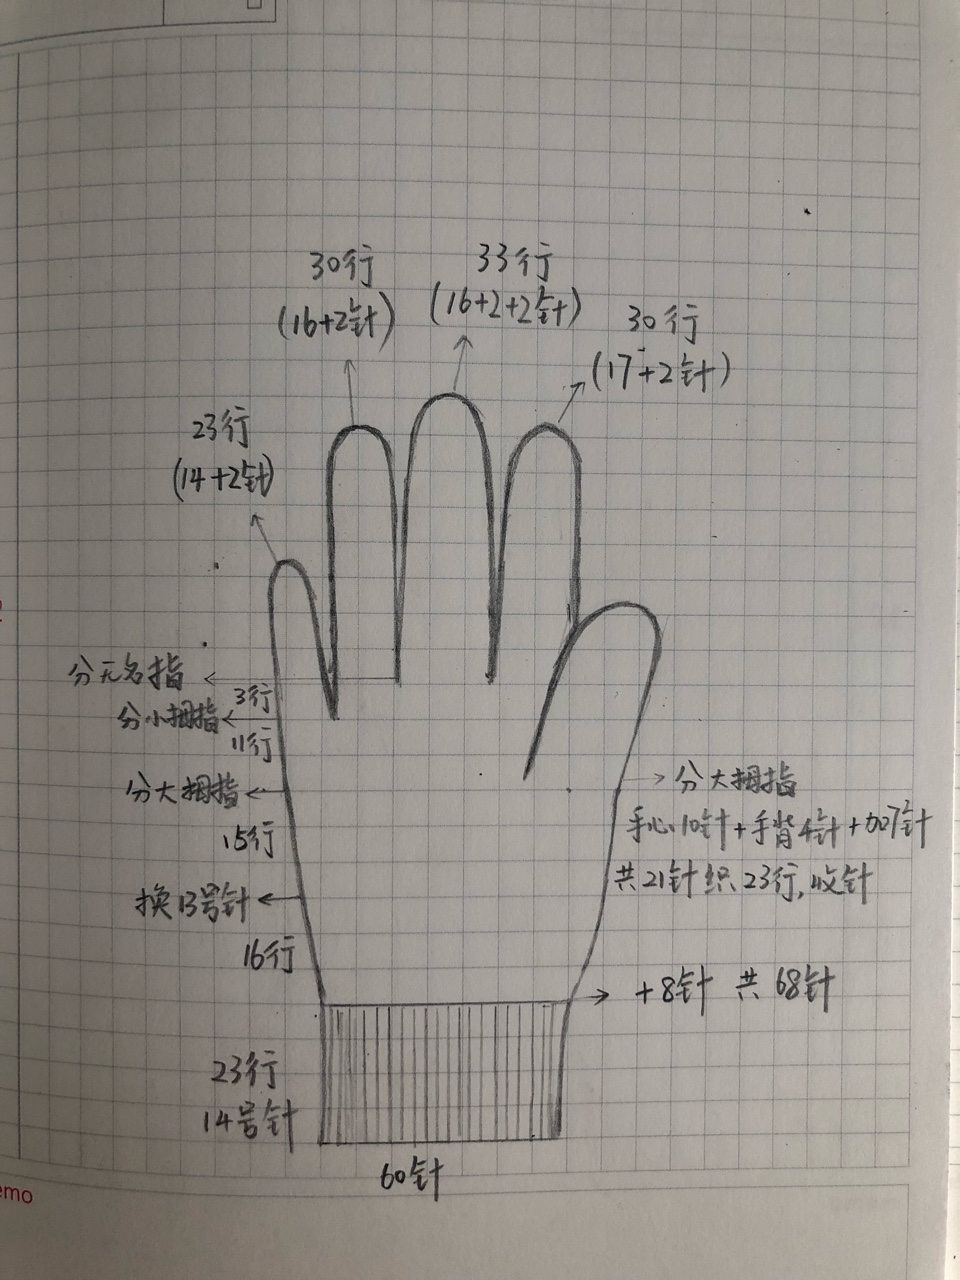 30行
(16+2针)
33行
(16+2+2针)
30行
(17+2针)
23行
(14+2针)
分无名指
3行
分小拇指
11行
分大拇指
15行
换13号针
16行
分大拇指
手心10针+手背4针+加7针
共21针织23行,收针
+8针 共68针
23行
14号针
60针
emo